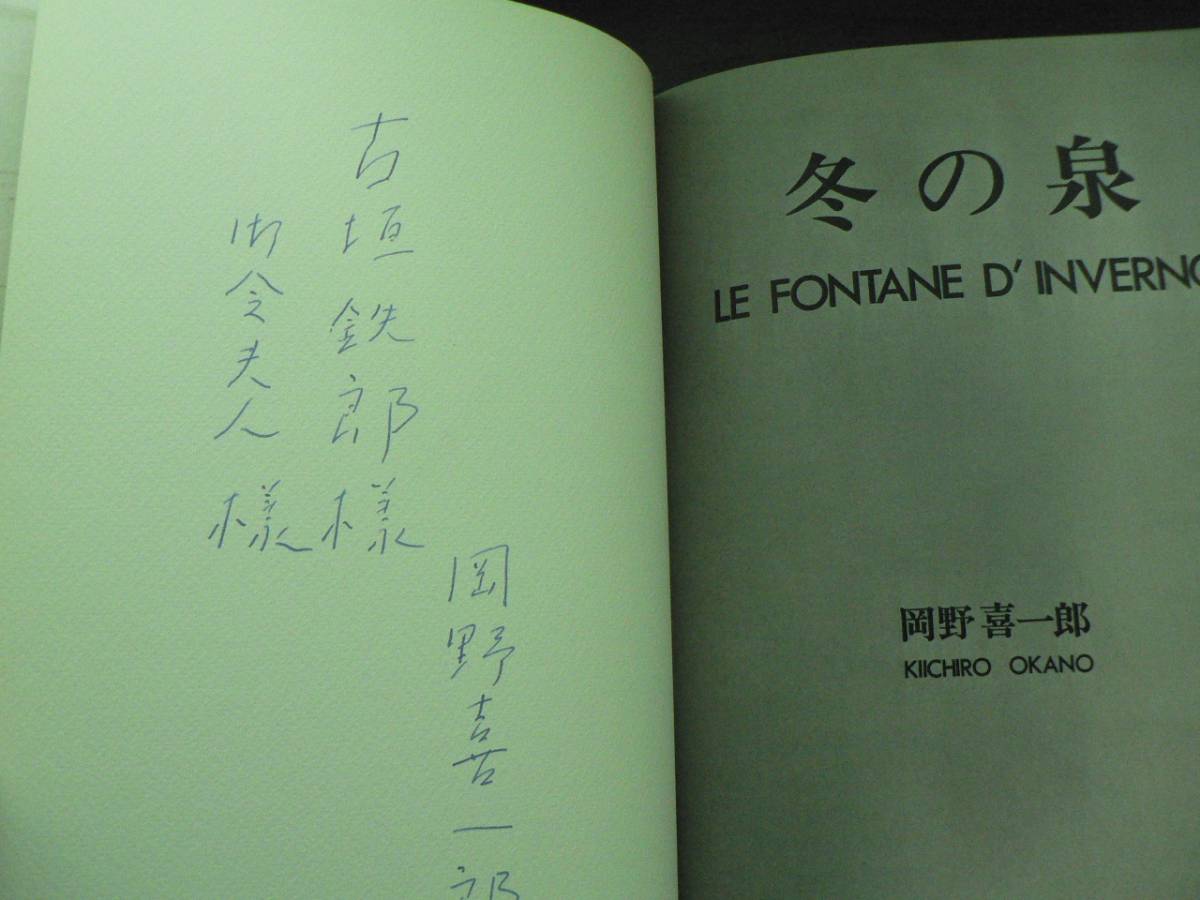 古垣鉄郎様
御令夫人様
岡野喜一郎
冬の泉
LE FONTANE D' INVERNO
岡野喜一郎
KIICHIRO OKANO